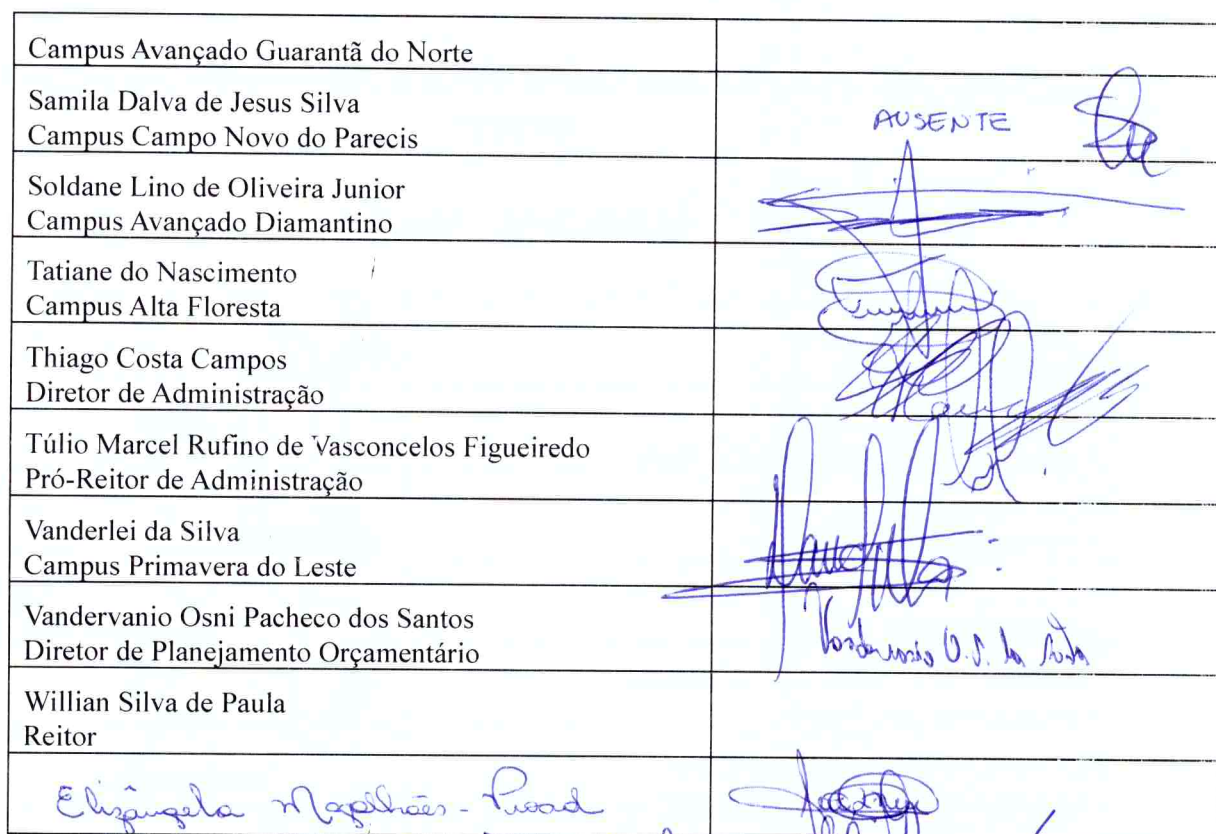 Campus Avançado Guarantã do Norte
Samila Dalva de Jesus Silva
Campus Campo Novo do Parecis
AUSENTE
Soldane Lino de Oliveira Junior
Campus Avançado Diamantino
Tatiane do Nascimento
Campus Alta Floresta
Thiago Costa Campos
Diretor de Administração
Túlio Marcel Rufino de Vasconcelos Figueiredo
Pró-Reitor de Administração
Vanderlei da Silva
Campus Primavera do Leste
Vandervanio Osni Pacheco dos Santos
Diretor de Planejamento Orçamentário
Willian Silva de Paula
Reitor
Elizângela Magalhães - Proad